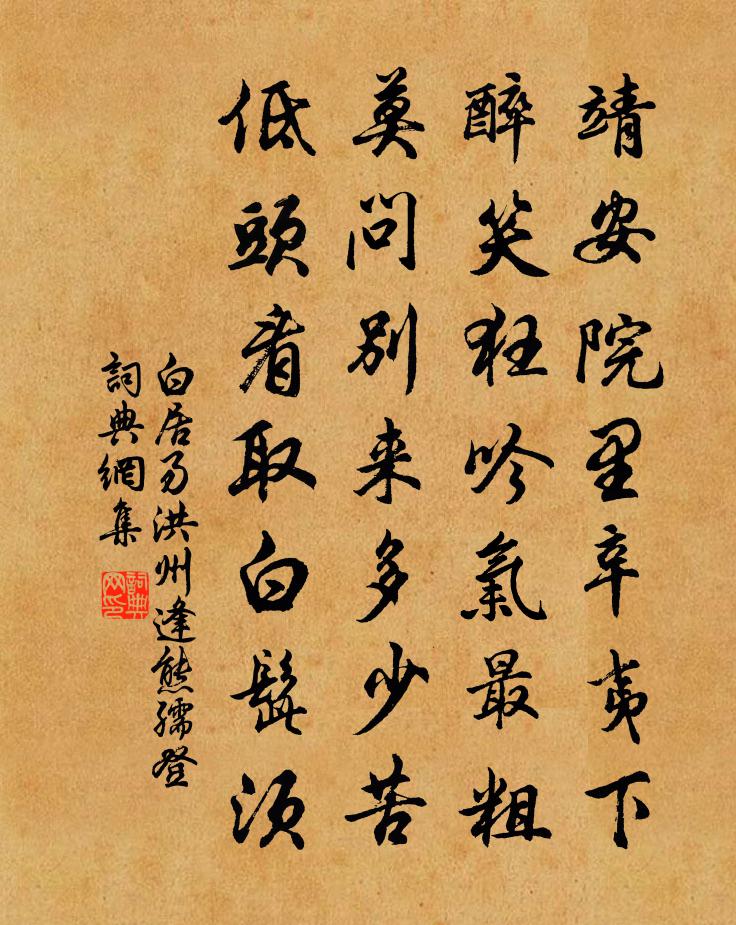 靖安院里辛夷下
醉笑狂吟氣最粗
莫問別来多少苦
低頭看取白髭須
白居易洪州逢熊孺登
詞典網集
詞典网印